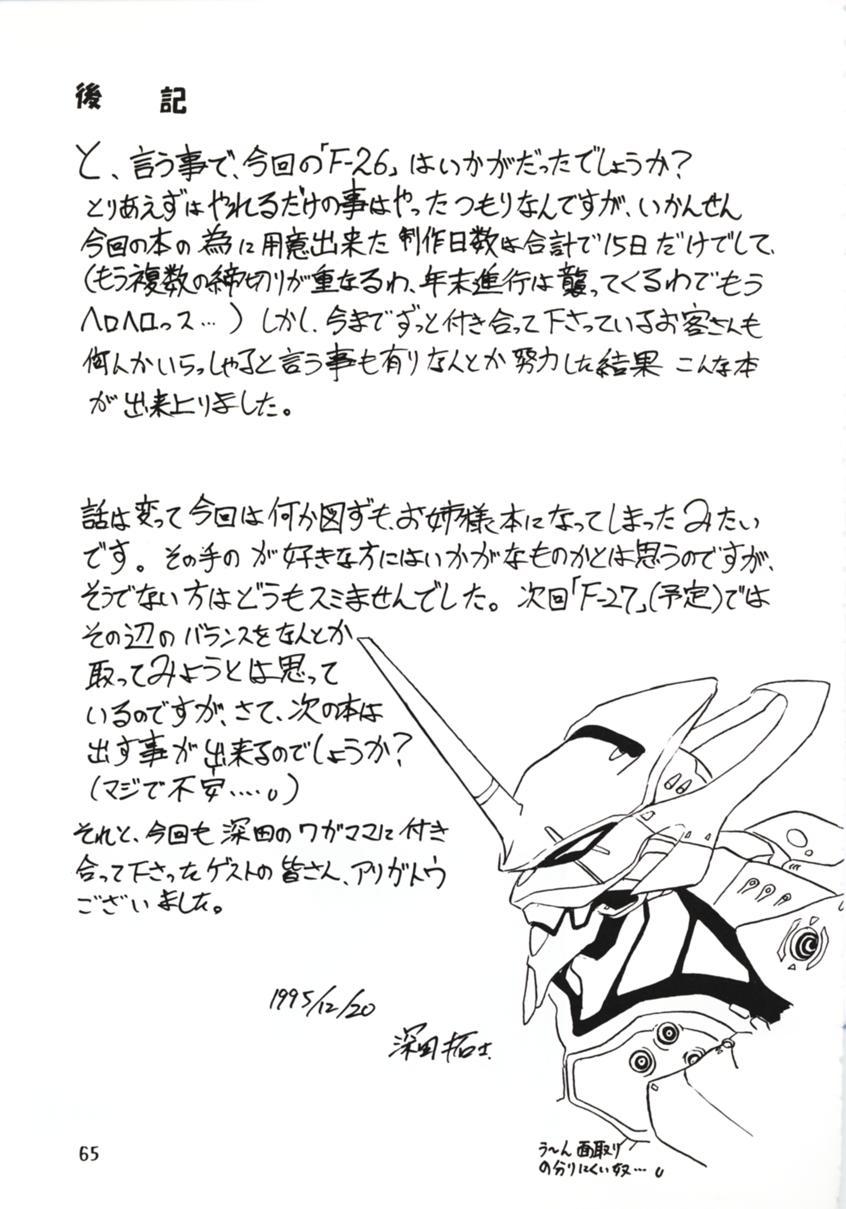 後 記
と、言う事で、今回の「F-26」はいかがだったでしょうか?
とりあえずはやれるだけの事はやったつもりなんですが、いかんせん
今回の本の為に用意出来た制作日数は合計で15日だけでして、
(もう複数の締切りが重なるわ、年末進行は襲ってくるわでもう
ヘロヘロっス…)しかし、今までずっと付き合って下さっているお客さんも
何人かいらっしゃると言う事も有りなんとか努力した結果 こんな本
が出来上りました。
話は変って今回は何か図ずも、お姉様本になってしまったみたい
です。その手のが好きな方にはいかがなものかとは思うのですが、
そうでない方はどうもスミませんでした。次回「F-27」(予定)では
その辺のバランスをなんとか
取ってみようとは思って
いるのですが、さて、次の本は
出す事が出来るのでしょうか?
(マジで不安……。)
それと、今回も深田のワガママに付き
合って下さったゲストの皆さん、アリガトウ
ございました。
1995/12/20
深田拓士
う〜ん面取り
の分りにくい奴…。
65